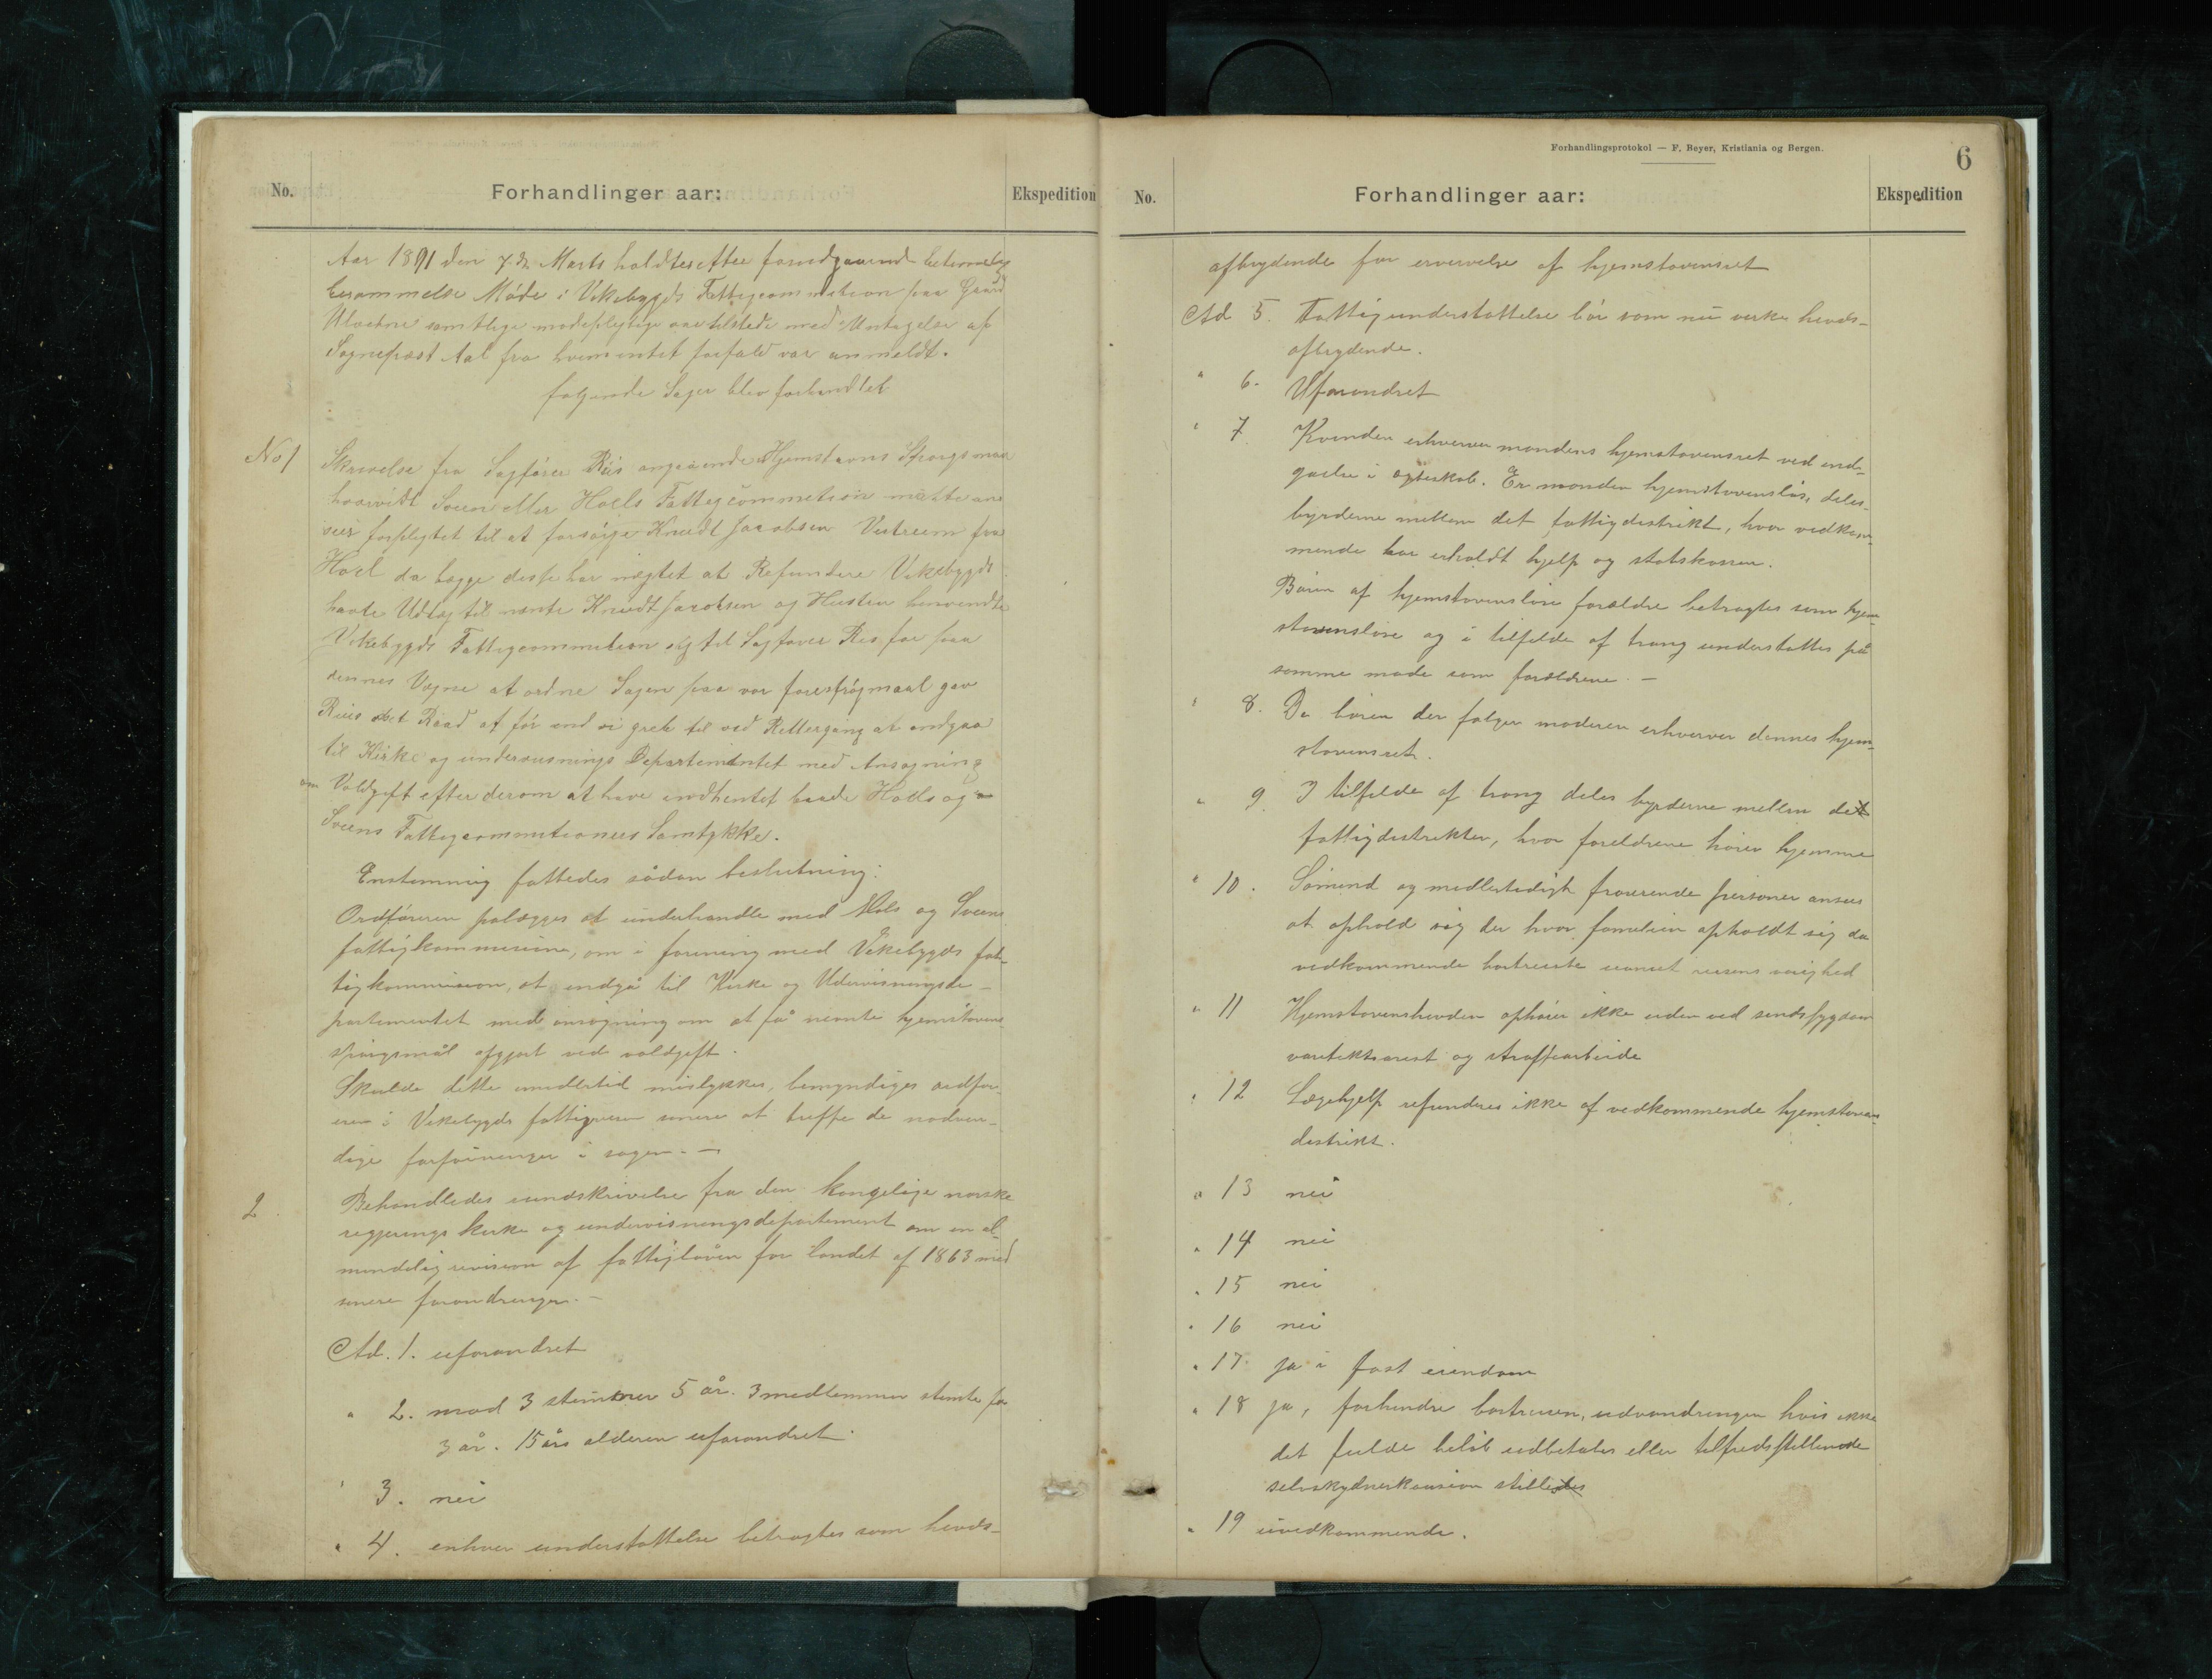 No.
Forhandlinger aar:
Ekspedition
Aar 1891 den 7de Marts holdtes efter forudgaaend betimelig
besammelse Møde i Vikebygds Fattigcommition paa Gaard
samtlige mødepligtige var tilstede med Untagelse af
Sognepræst Aal fra hvem intet forfald var anmeldt.
følgende Sager blev forhandlet
No 1
Skrivelse fra Sagfører Riis angaaende Hjemstavns Spørgsmaal
hvorvidt Sveen eller Hoels Fattigcommetion maatte an
sees forpligtet til at forsørge Knudt Jacobsen fra
Hoel da begge disse har nægtet at Refundere Vikebygds
havte Udlæg til nævnte Knudt Jacobsen og Hustru henvendte
Vikebygds Fattigcommition sig til Sagfører Ris for paa
dennes Vegne at ordne Sagen paa vor forespøgmaal gav
Riis det Raad at før end vi greb til ved Rettergang at indgaa
til Kirke og undervisnings Departementet med Ansøgning
om Voldgift efter derom at have indhentet baade Hoels og
Sveens Fattigcommitioners Samtykke.
Enstemmig fattedes sådan beslutning:
Ordføreren palægges at underhandle med Ølens og Sveens
fattigkommissioner, om i forening med Vikebygds fat-
tigkommission, at indgå til Kirke og Udervisningsde-
partementet med ansøgning om at få nevnte hjemstavns
spørgsmål afgjort ved voldgift.
Skulde dette imidlertid mislykkes, bemyndiges ordfør-
eren i Vikebygds fattigvesen senere at treffe de nødven-
dige forføininger i sagen. —
2.
Behandledes rundskrivelse fra den kongelige norske
regjerings kirke og undervisningsdepartement om en al-
mindelig revision af fattigloven for landet af 1863 med
senere forandringer. —
Ad. 1. uforandret
" 2. mod 3 stemmer 5 år. 3 medlemmer stemte for
3 år. 15 års alderen uforandret.
" 3. nei
" 4. enhver understøttelse betragtes som hevds-
Forhandlingsprotokol — F. Beyer, Kristiania og Bergen.
6
No.
Forhandlinger aar:
Ekspedition
afbrydende for ervervelse af hjemstavnsret
Ad 5. Fattigunderstøttelse bør som nu virke hevds-
afbrydende.
" 6. Uforandret
" 7. Kvinden erhverver mandens hjemstavnsret ved ind-
gåelse i ægteskab. Er manden hjemstavnsløs, deles
byrderne mellem det fattigdistrikt, hvor vedkom-
mende har erholdt hjelp og statskassen.
Børn af hjemstavnsløse foreldre betragtes som hjem-
stavnsløse og i tilfelde af trang understøttes på
samme måde som foreldrene. —
" 8. De børn der følger moderen erhverver dennes hjem-
stavnsret.
" 9. I tilfelde af trang deles byrderne mellem det
fattigdistrikter, hvor foreldrene hører hjemme
" 10. Sømend og midlertidigt fraværende personer ansees
at ophold sig der hvor familien opholdt sig da
vedkommende bortreiste uanset reisens varighed
" 11 Hjemstavnshevden ophører ikke uden ved sindssygdom
varetektsarest og straffearbeide
" 12 Lægehjelp refunderes ikke af vedkommende hjemstavns
distrikt.
" 13 nei
" 14 nei
" 15 nei
" 16 nei
" 17 ja i fast eiendom
" 18 ja, forhindre bortreisen, udvandringen hvis ikke
det fulde beløb udbetales eller tilfredsstillende
selvskyldnerkausion stilles
" 19 uvedkommende.